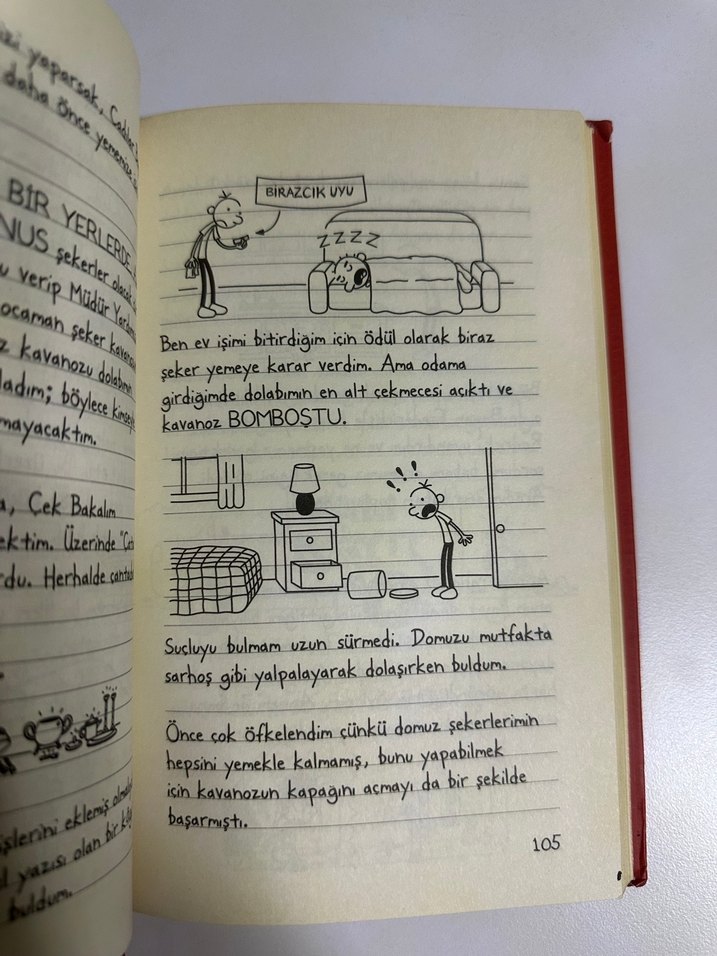 daha önce
BİR YERLERDE
şekerler
verip Müdür
kavanozu
böylece
Çek Bakalım
Üzerinde
Herhalde
eklemiş
yazısı olan bir
buldum.
BİRAZCIK UYU
ZZZZ
Ben ev işimi bitirdiğim için ödül olarak biraz
şeker yemeye karar verdim. Ama odama
girdiğimde dolabımın en alt çekmecesi açıktı ve
kavanoz BOMBOŞTU.
!!!
Suçluyu bulmam uzun sürmedi. Domuzu mutfakta
sarhoş gibi yalpalayarak dolaşırken buldum.
Önce çok öfkelendim çünkü domuz şekerlerimin
hepsini yemekle kalmamış, bunu yapabilmek
için kavanozun kapağını açmayı da bir şekilde
başarmıştı.
105